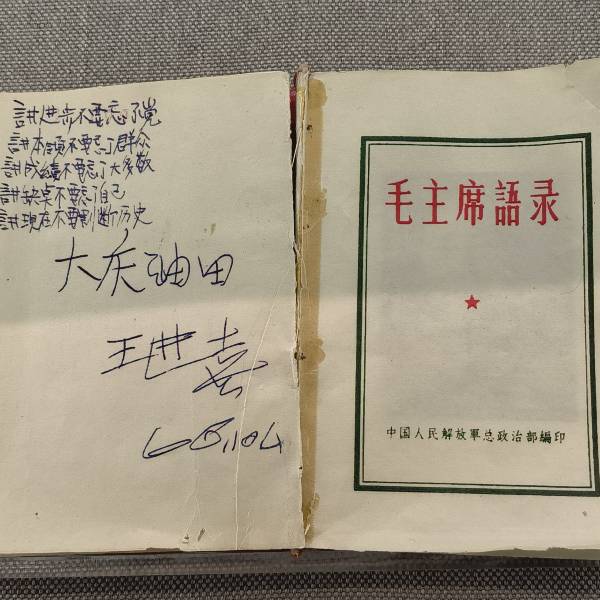 讲进步不要忘了党
讲本领不要忘了群众
讲成績不要忘了大多数
讲缺点不要忘了自己
讲现在不要割断历史
大庆油田
王进喜
毛主席語录
中国人民解放軍总政治部編印